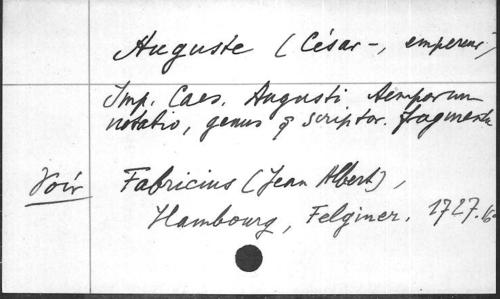 Auguste (César-, empereur)
Imp. Caes. Augusti temporum
notatio, genus & scriptor. fragmenta
Voir Fabricius (Jean Albert),
Hambourg, Felginer. 1727.